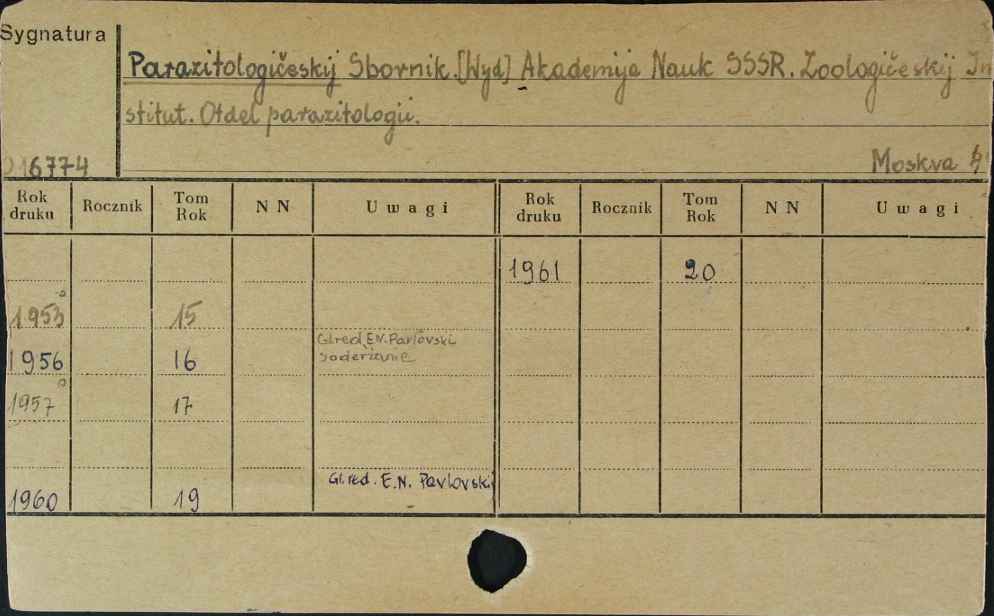 Sygnatura
Parazitologičeskij Sbornik. [Wyd] Akademija Nauk SSSR. Zoologičeskij In
stitut. Otdel parazitologii.
16774
Moskva
Rok druku Rocznik Tom Rok NN Uwagi Rok druku Rocznik Tom Rok NN Uwagi
1961 20
1953 15
Gl.red E.N. Pavlovski
1956 16
1957 17
Gl. red. E.N. Pavlovski
1960 19